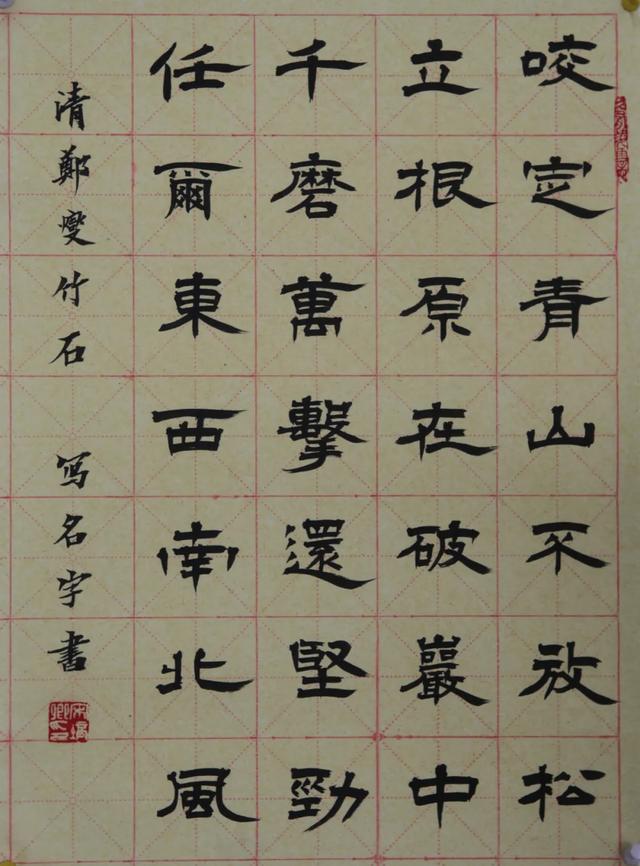 咬定青山不放松
立根原在破巖中
千磨萬擊還堅勁
任爾東西南北風
清鄭燮竹石 写名字書